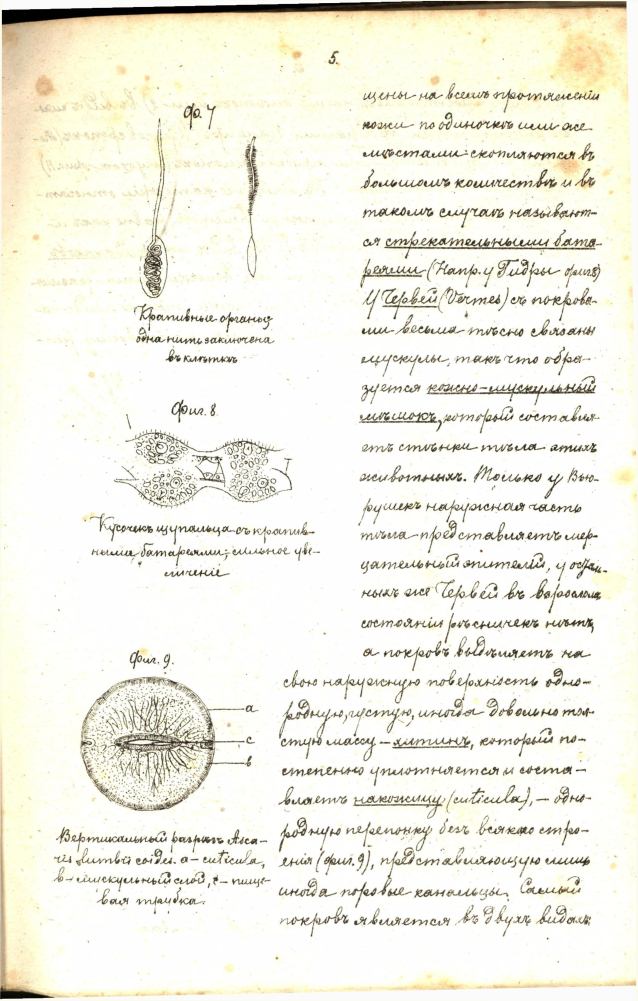 5.
Ф. 7
Крапивные органы;
одна нить заключена
въ клѣткѣ
Фиг. 8.
Кусочекъ щупальца съ крапив-
ными батареями; сильное уве-
личеніе
Фиг. 9.
а
с
в
Вертикальный разрѣзъ Asca-
ris lumbricoides. a – cuticula,
в – мускульный слой, с – пище-
вая трубка.
щены на всемъ протяженіи
кожи по одиночкѣ или же
мѣстами скопляются въ
большомъ количествѣ и въ
такомъ случаѣ называют-
ся стрекательными бата-
реями (Напр. у Гидры фиг 8)
У Червей (Vermes) съ покрова-
ми весьма тѣсно связаны
мускулы, такъ что обра-
зуется кожно-мускульный
мѣшокъ, который составля-
етъ стѣнки тѣла этихъ
животныхъ. Только у Вью-
рушекъ наружная часть
тѣла представляетъ мер-
цательный эпителій, у осталь-
ныхъ же Червей въ взросломъ
состояніи рѣсничекъ нѣтъ,
а покровъ выдѣляетъ на
свою наружную поверхность одно-
родную, густую, иногда довольно тол-
стую массу – хитинъ, который по-
степенно уплотняется и соста-
вляетъ накожицу (cuticula), – одно-
родную перепонку безъ всякаго стро-
енія (фиг. 9), представляющую лишь
иногда поровые канальцы. Самый
покровъ является въ двухъ видахъ